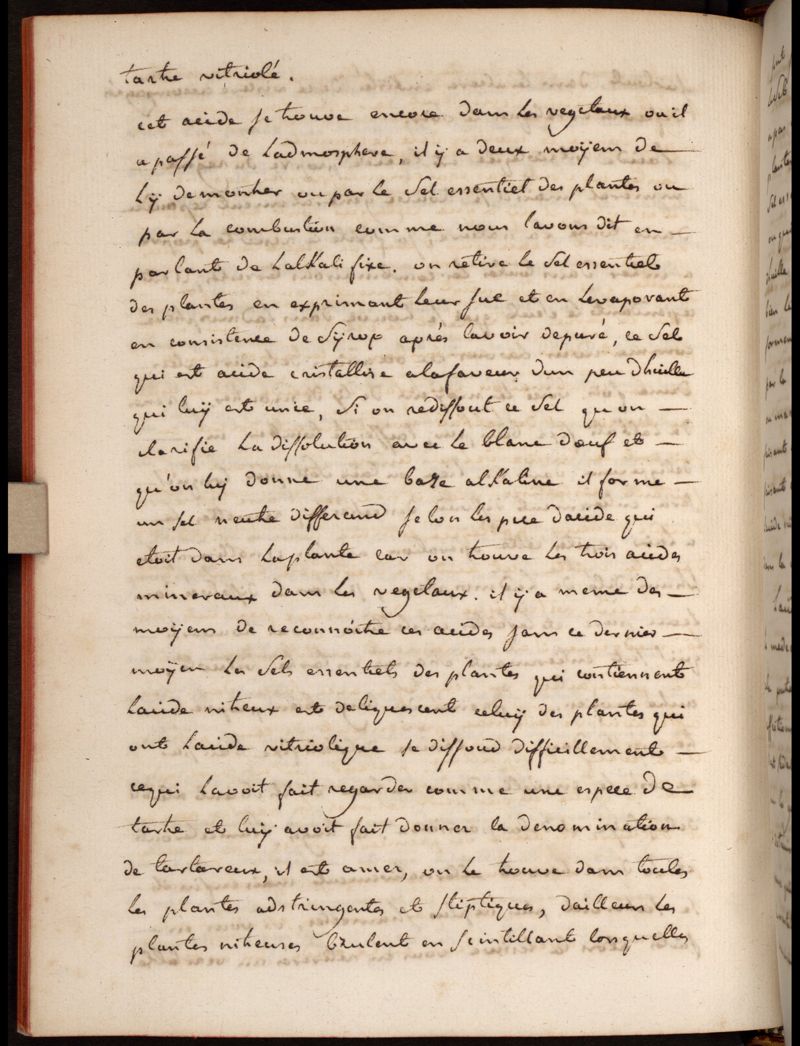 tartre vitriolé.
cet acide se trouve encore dans les vegetaux ou il
a passé de Ladmosphere, il y a deux moÿens de
Lÿ demontrer ou par le Sel essentiel des plantes ou
par La combustion comme nous lavons dit en
parlant de Lalkali fixe. on retire le Sel essentiel
des plantes en exprimant leur suc et en levaporant
en consistence de Sÿrop après lavoir depuré, ce Sel
qui est acide cristallise a la faveur dun peu dhuille
qui luÿ est unie, Si on redissout ce Sel qu on
clarifie La dissolution avec le blanc dœuf et
qu'on luÿ donne une baze alkaline il forme
un sel neutre differend selon lespece dacide qui
etoit dans la plante car on trouve les trois acides
mineraux dans les vegetaux. il y a meme des
moÿens de reconnoître ces acides sans ce dernier
moÿen les Sels essentiels des plantes qui contiennent
Lacide nitreux est deliquescent celuÿ des plantes qui
ont Lacide vitriolique se dissoud difficillement
ce qui Lavoit fait regarder comme une espece de
tartre et luÿ avoit fait donner la denomination
de tartareux, il est amer, on le trouve dans toutes
les plantes adstringentes et stiptiques, dailleurs les
plantes nitreuses brulent en scintillant lorsquelles